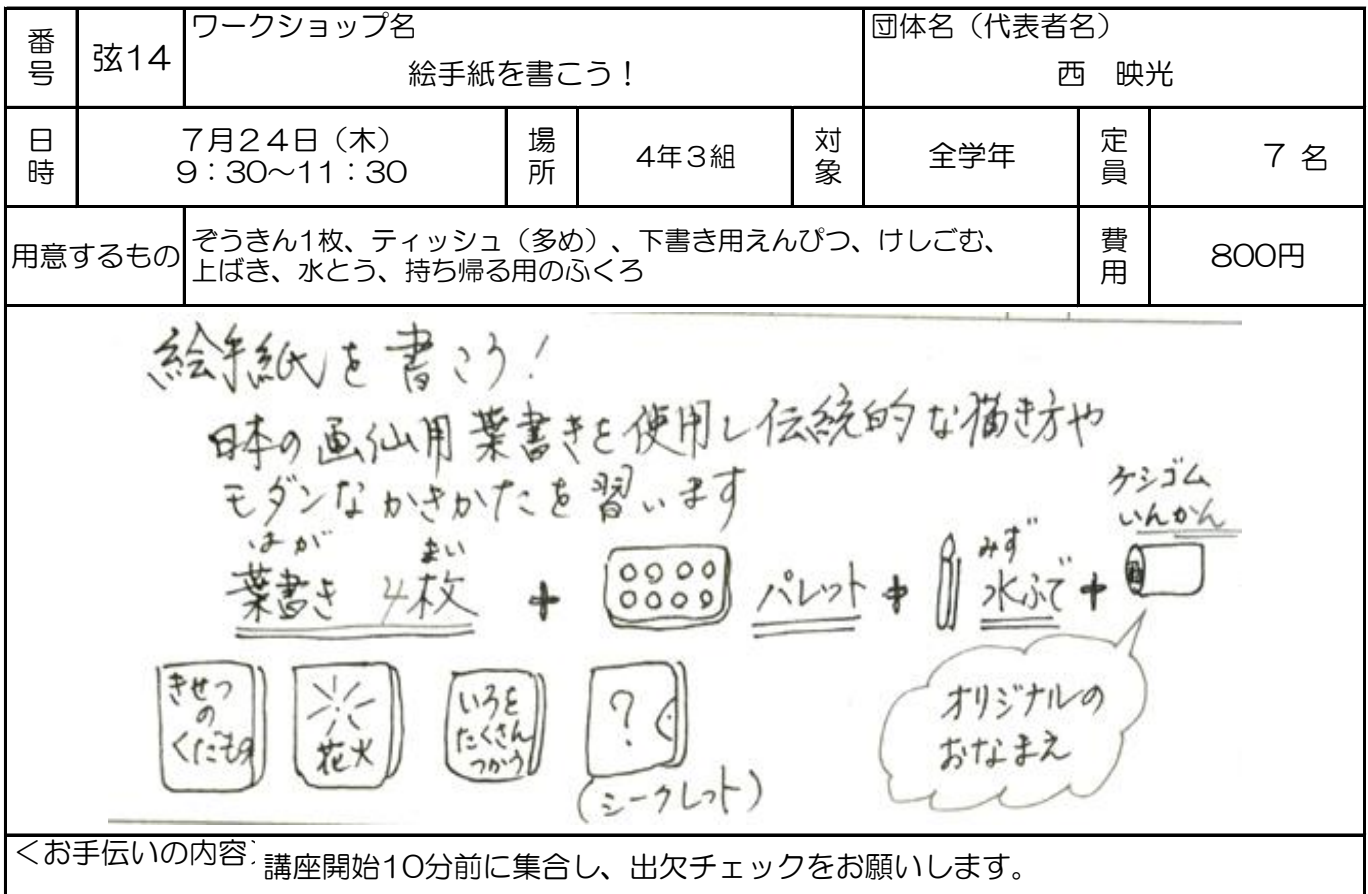 番号
弦14
ワークショップ名
絵手紙を書こう!
団体名(代表者名)
西 映光
日時
7月24日(木)
9:30~11:30
場所
4年3組
対象
全学年
定員
7 名
用意するもの
ぞうきん1枚、ティッシュ(多め)、下書き用えんぴつ、けしごむ、
上ばき、水とう、持ち帰る用のふくろ
費用
800円
絵手紙を書こう!
日本の画仙用葉書きを使用し伝統的な描き方や
モダンなかきかたを習います
ケシゴム
いんかん
はが まい みず
葉書き 4枚 + パレット + 水ふで +
きせつ
の
くだもの
花火
いろを
たくさん
つかう
?
(シークレット)
オリジナルの
おなまえ
<お手伝いの内容
講座開始10分前に集合し、出欠チェックをお願いします。